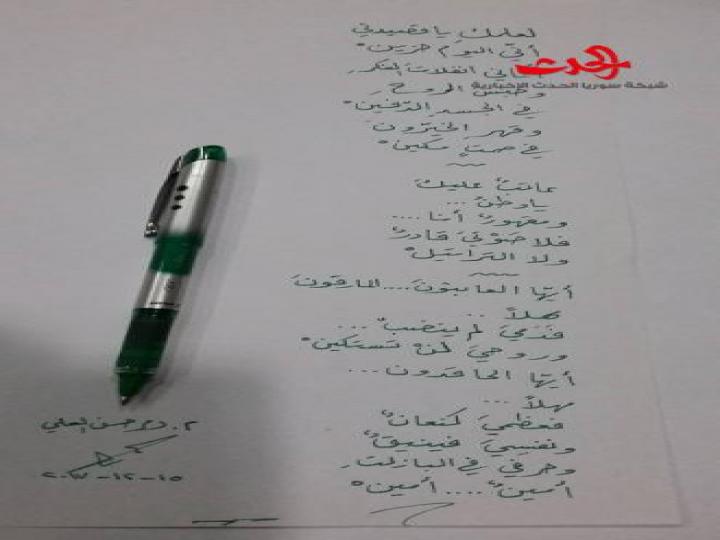 لعلكِ يا قصيدتي
أتى اليوم حزينْ
الحدث
انفلات الفكرِ
شبكة سوريا الحدث الإخبارية
وحبس الروحِ
في الجسدِ الدفينْ
وقهر الحيزبون
في صمتٍ سكينْ
عاتبٌ عليكَ
يا وطنُ ...
ومقهورٌ أنا ....
فلا صوتيَ قادرٌ
ولا التراتيلْ
أيها العابثونَ .... المارقونَ
مهلاً ...
فدميَ لم ينضب ...
وروحيَ لنْ تستكينْ
أيها الحاقدون ...
مهلاً ...
فعظميَ كنعانُ
ونفسيَ فينيقٌ
وحرفي في البازلتِ
أمينٌ .... أمينْ
١٥-١٢-٢٠١٧